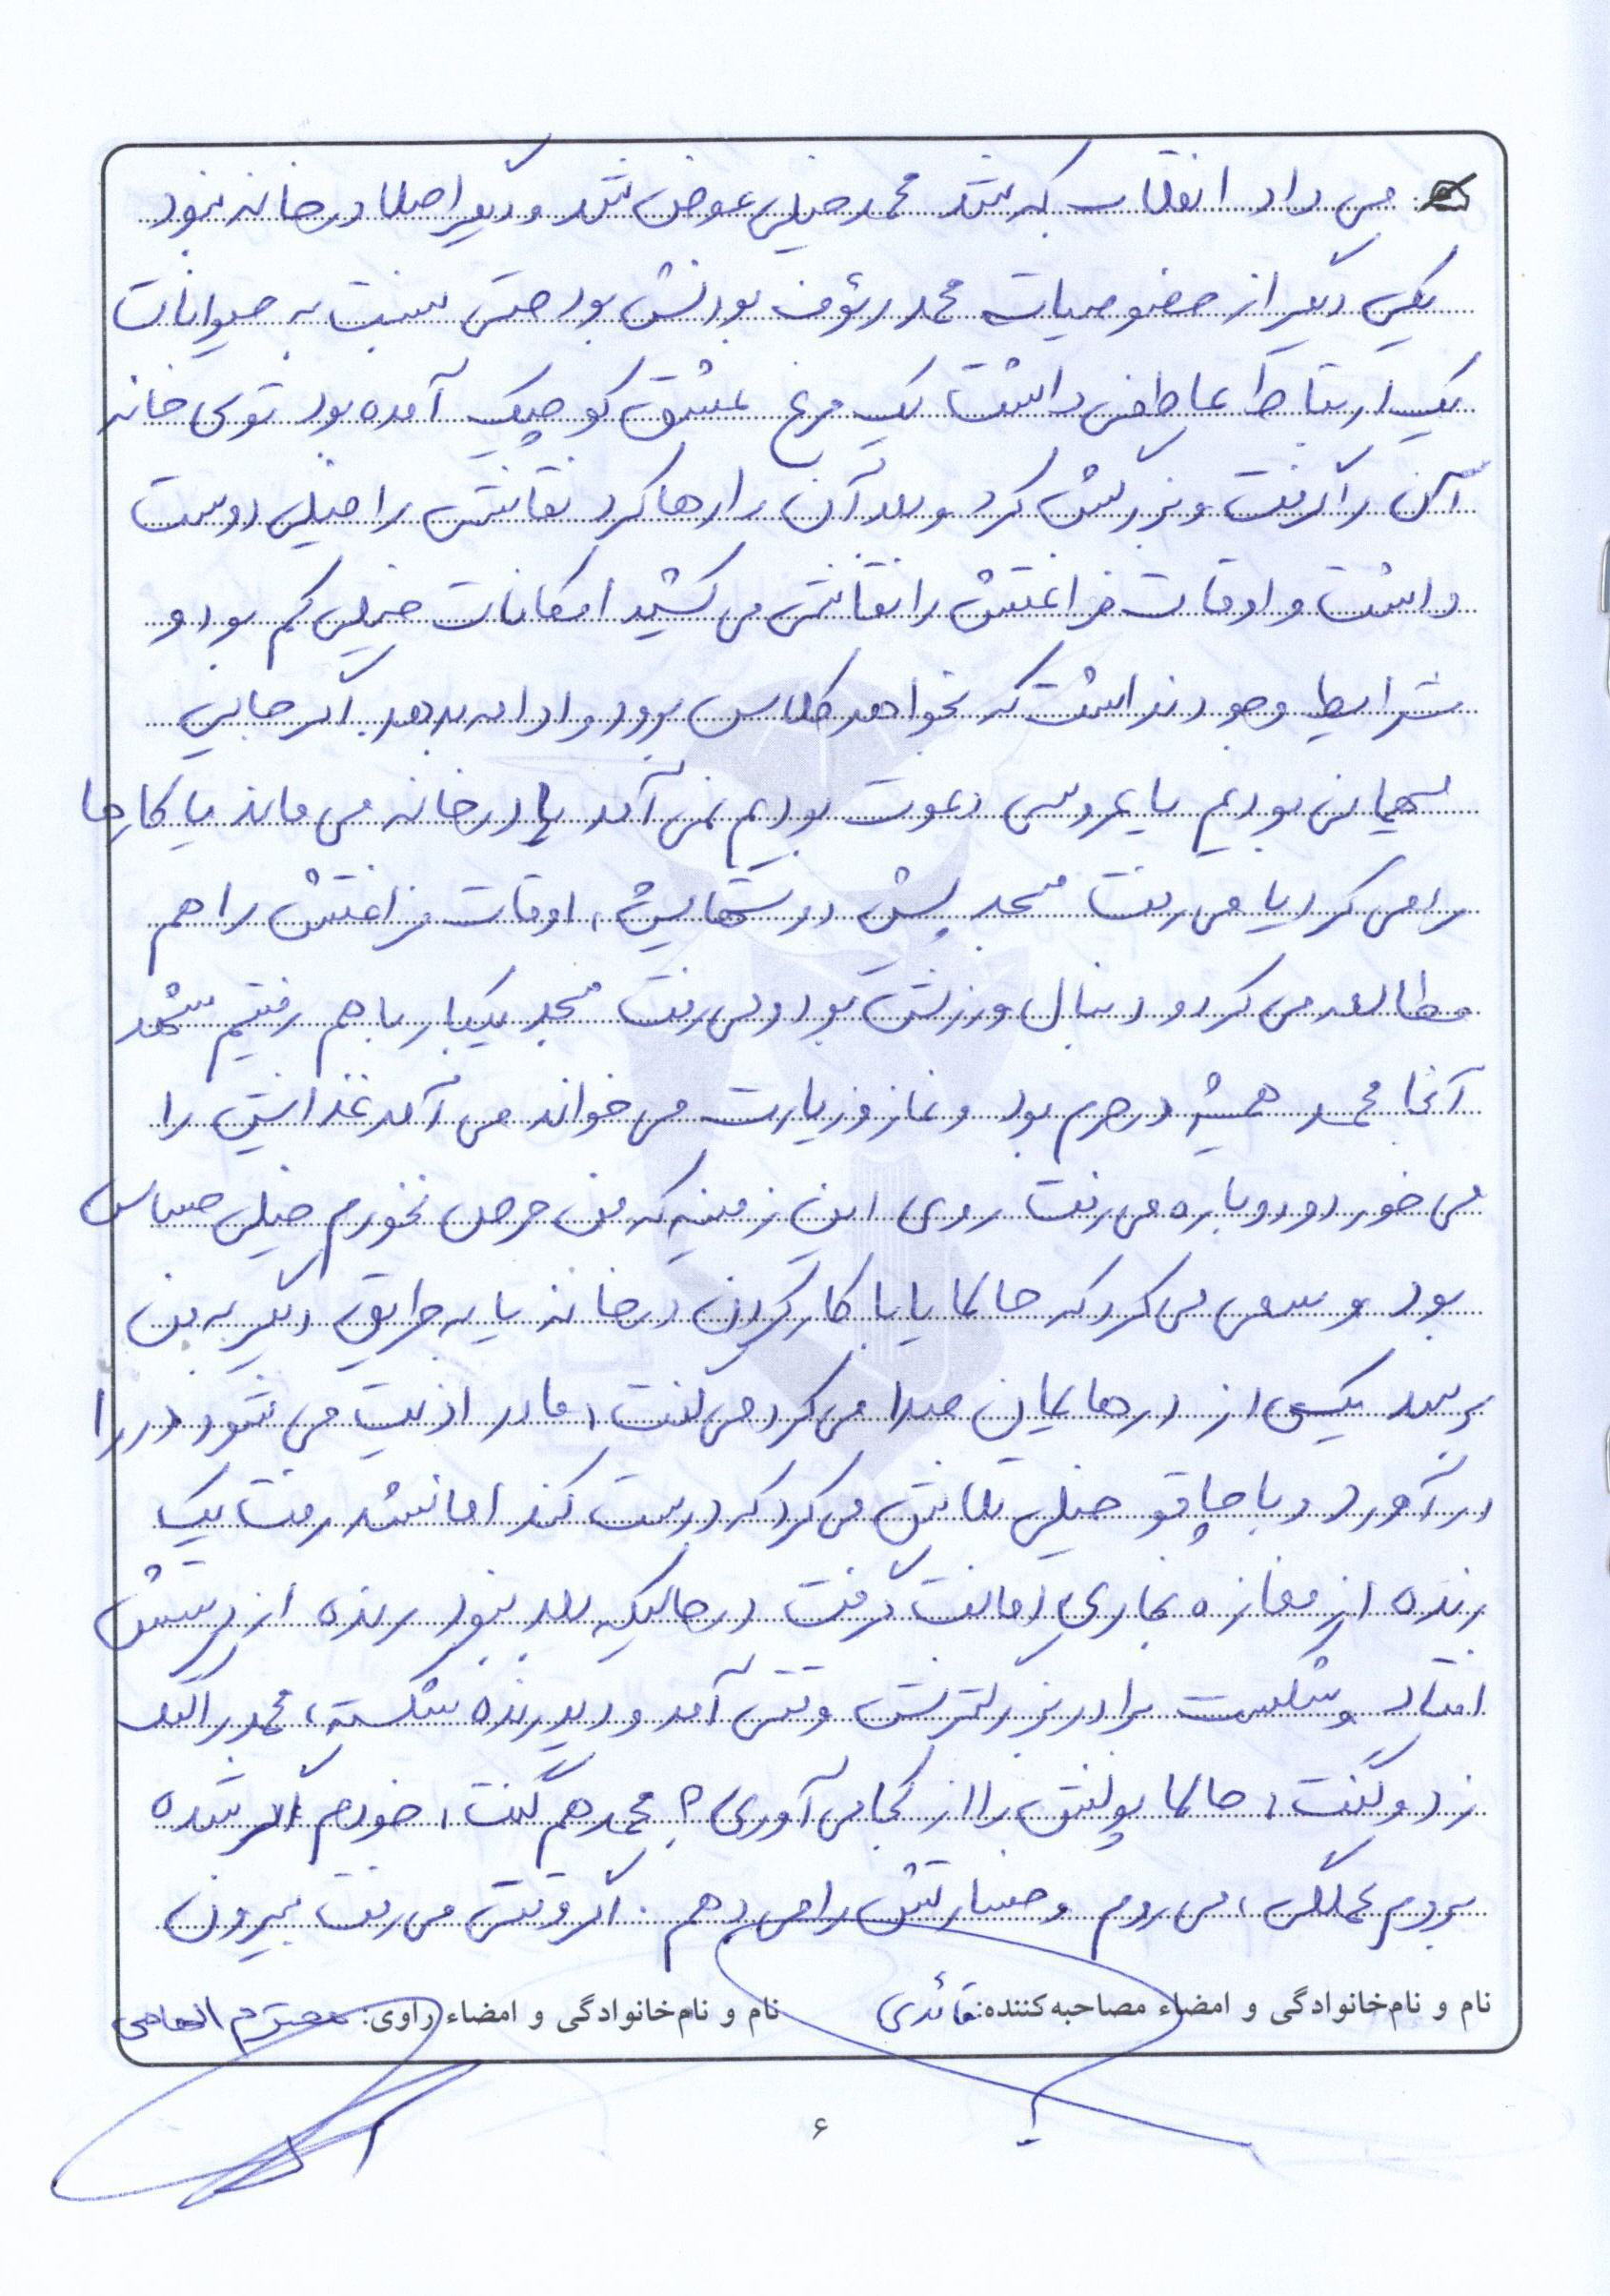 می داد انقلاب که شد محمد خیلی عوض شد و دیگر اصلا در خانه نبود
یکی دیگر از خصوصیات محمد رئوف بودنش بود حتی نسبت به حیوانات
یک ارتباط عاطفی داشت یک مرغ عشق کوچیک آمده بود توی خانه
آن را گرفت و بزرگش کرد و بعد آن را رها کرد نقاشی را خیلی دوست
داشت و اوقات فراغتش را نقاشی می کشید امکانات خیلی کم بود و
شرایط وجود نداشت که بخواهد کلاس برود و ادامه بدهد. اگر جایی
مهمان بودیم یا عروسی دعوت بودیم نمی آمد یا در خانه می ماند یا کارها
را می کرد یا می رفت مسجد پیش دوستهایش، اوقات فراغتش را هم
مطالعه می کرد و دنبال ورزش بود و می رفت مسجد یکبار با هم رفتیم مشهد
آنجا محمد همیشه در حرم بود و نماز و زیارت می خواند می آمد غذایش را
می خورد و دوباره می رفت روی این زمینه که من حرص نخورم خیلی حساس
بود و سعی می کرد که حالا یا با کار کردن در خانه یا به طریق دیگر به من
برسد یکی از درهایمان صدا می کرد می گفت، مادر اذیت می شود در را
در آورد و با چاقو خیلی تلاش می کرد که درست کند اما نشد رفت یک
رنده از مغازه نجاری امانت گرفت در حالیکه بلد نبود رنده از دستش
افتاد و شکست برادر بزرگترش وقتی آمد و دید رنده شکسته، محمد را کتک
زد و گفت، حالا پولش را از کجا می آوری؟ محمد هم گفت، خودم اگر شده
بروم عملگی، می روم و خسارتش را می دهم. اگر وقتی می رفت بیرون
نام و نام‌خانوادگی و امضاء مصاحبه‌کننده: قائدی نام و نام‌خانوادگی و امضاء راوی: محترم الهامی
۶